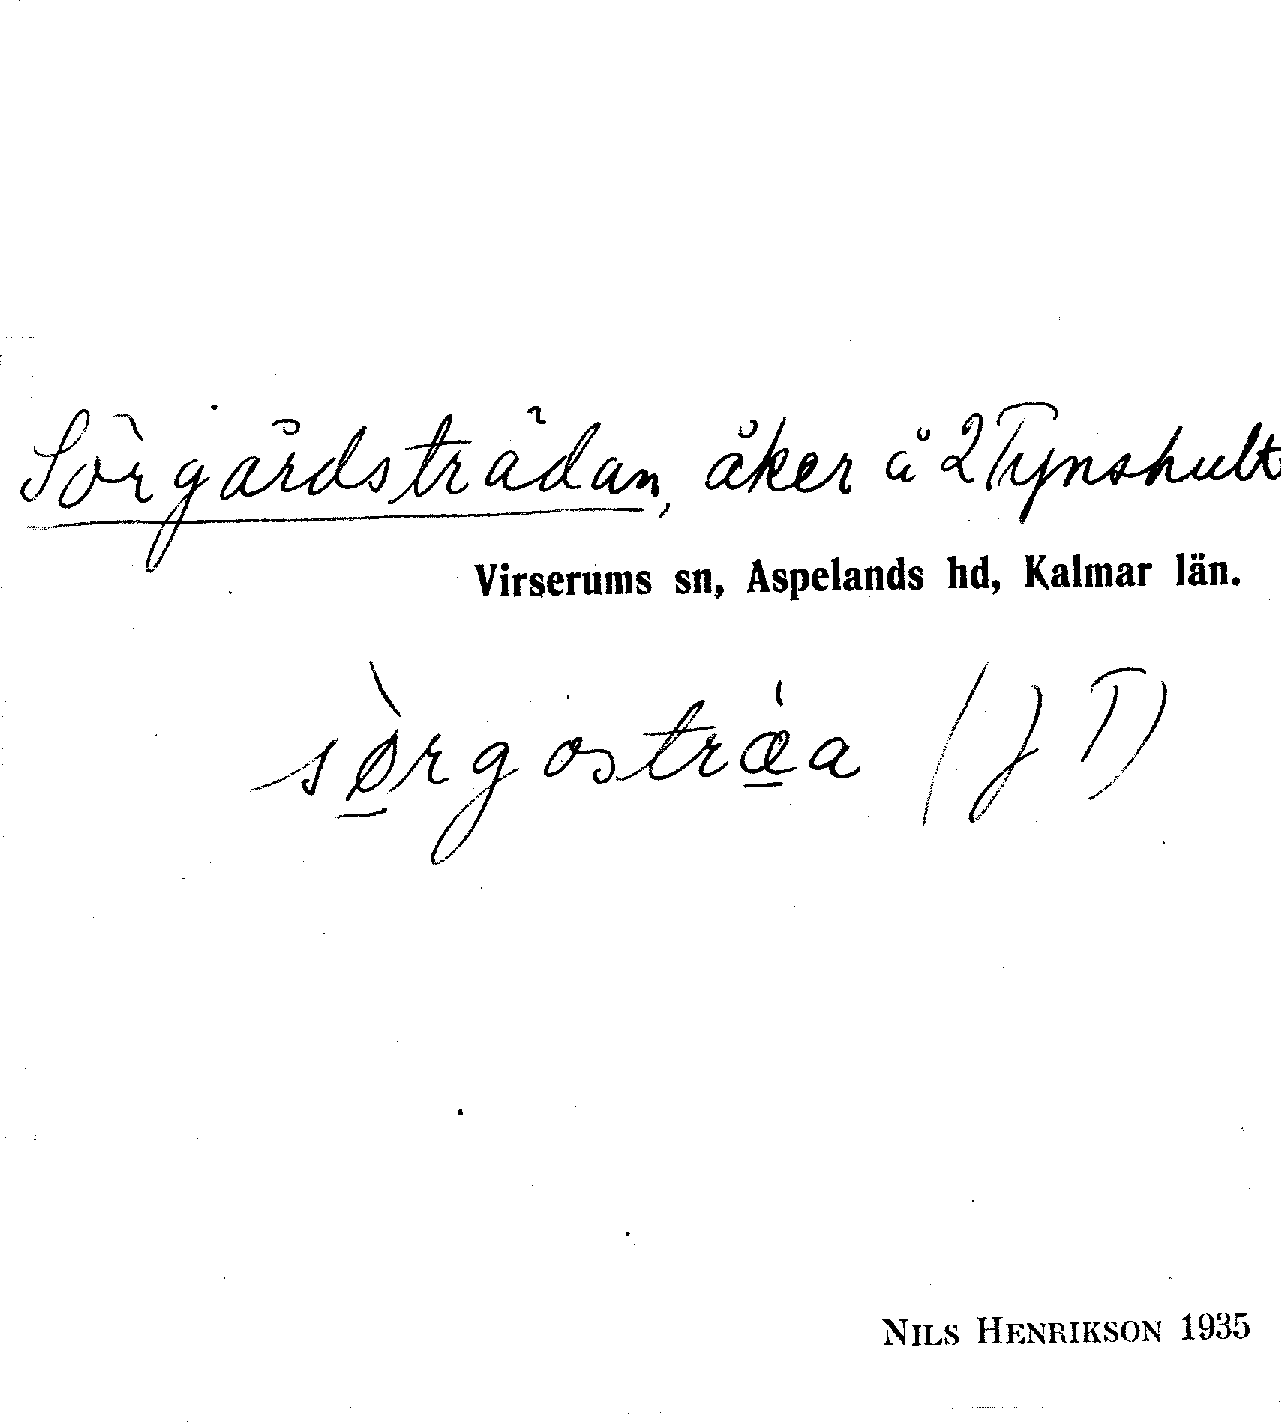 Sörgårdsträdan, åker å 2 Tynshult
Virserums sn, Aspelands hd, Kalmar län.
sø̀rgostrǽa (J T)
NILS HENRIKSON 1935